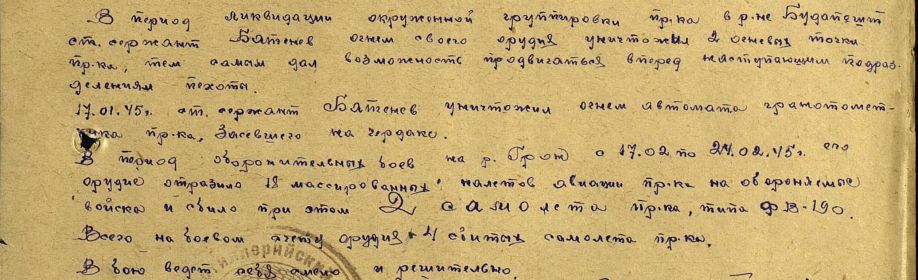 В период ликвидации окруженной группировки пр-ка в р-не Будапешт
ст. сержант Батенев огнем своего орудия уничтожил 2 огневых точки
пр-ка, тем самым дал возможность продвигаться вперед наступающим подраз-
делениям пехоты.
17.01.45г. ст. сержант Батенев уничтожил огнем автомата гранотомет-
чика пр-ка, Засевшего на чердаке.
В период оборонительных боев на р. Грон с 17.02 по 24.02.45г. его
орудие отразило 18 массированных налетов авиации пр-ка на обороняемые
войска и сбило при этом 2 самолета пр-ка, типа ФВ-190.
Всего на боевом счету орудия 4 сбитых самолета пр-ка.
В бою ведет себя смело и решительно.